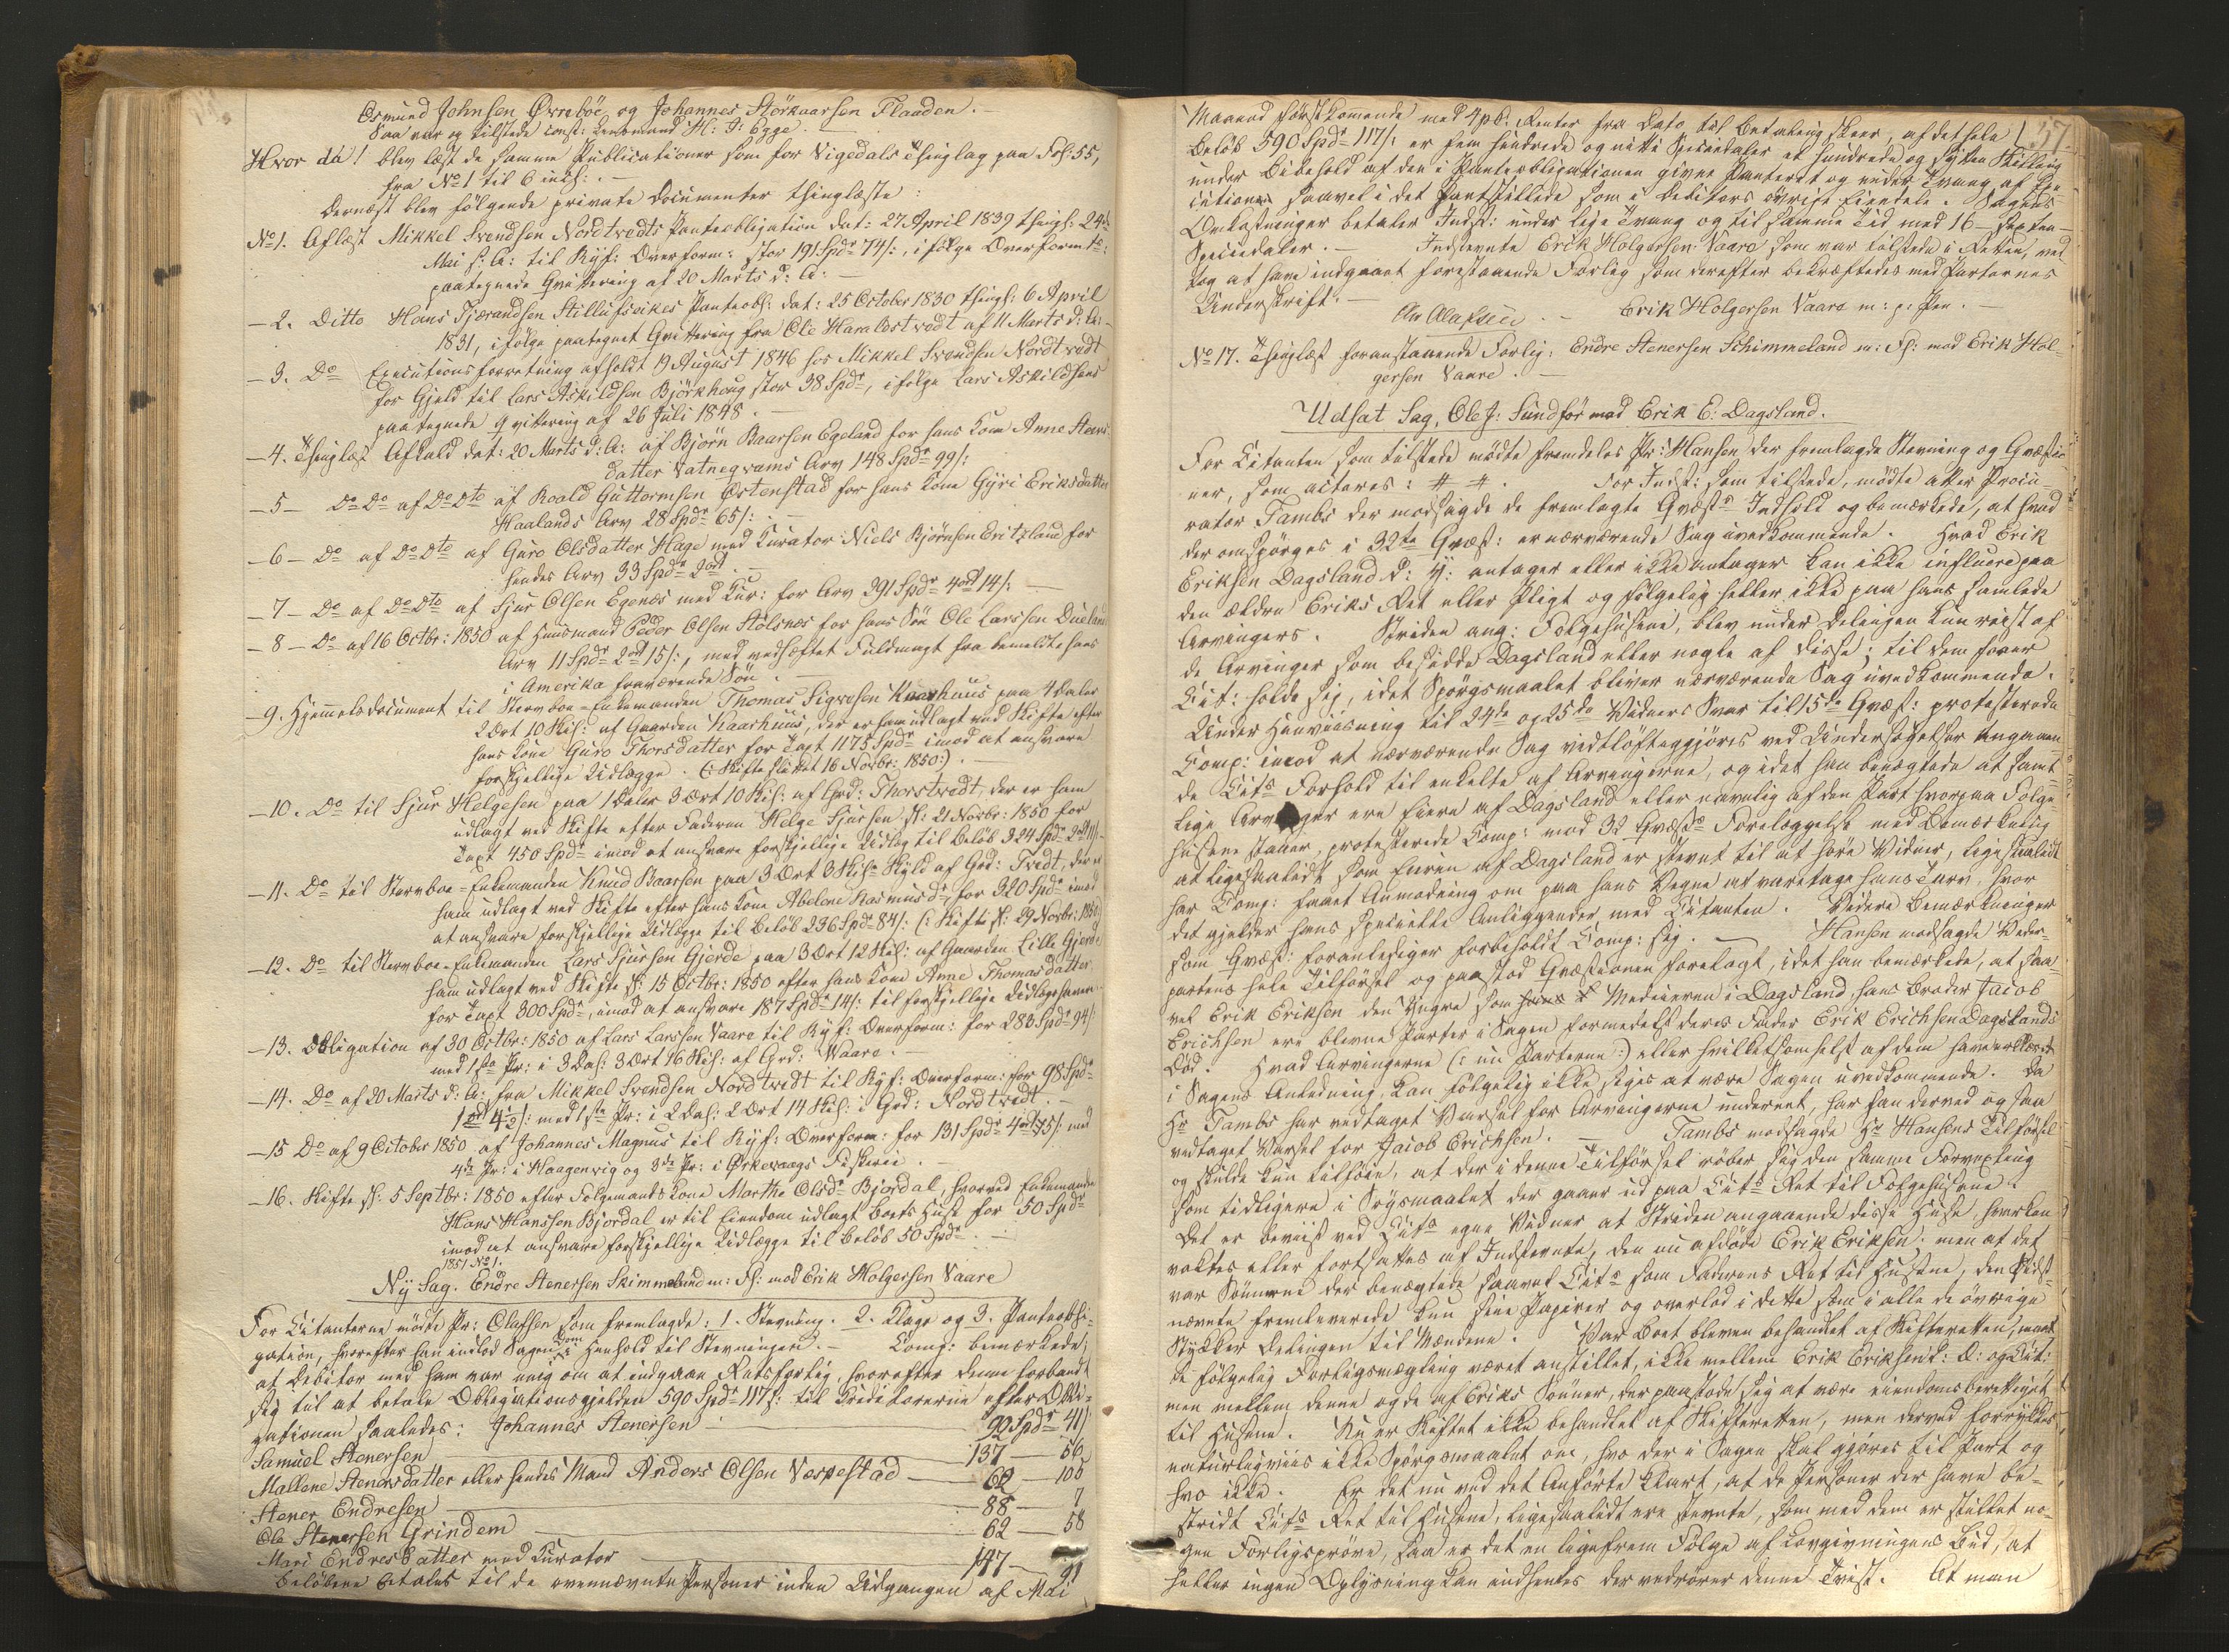 Osmund Johnsen Øvreböe, og Johannes Störkaarsen Flaaden.
Saa var og tilstede const: Lensmand H: J: Egge.
Hvor da! blev læst de samme Publicationer som for Vigedals Thinglag paa Fol: 55,
fra No 1 til 6 incl:.
Dernæst blev følgende private Documenter thinglæste:
No 1. Aflæst Mikkel Svendsen Nordtvedts Panteobligation dat: 27 April 1839 thingl: 24de
Mai s: A: til Ryf: Overform: stor 191 Spdr 74 s:, ifölge Overform:
paategnede Qvittering af 20 Marts d: A:
- 2. Ditto Hans Tjerandsen Stillufseikes Panteobl: dat: 25 October 1830 thingl: 6 April
1831, ifölge paategnet Qvittering fra Ole Haraldstvedt af 11 Marts d: A:
- 3. Do Executionsforretning afholdt 19 August 1846 hos Mikkel Svendsen Nordtvedt
for Gjeld til Lars Askildsen Björkhoug stor 38 Spdr, ifölge Lars Askildsens
paategnede Qvittering af 26 Juli 1848.
- 4. Thinglæst Afkald dat: 20 Marts d: A: af Björn Baarsen Egeland for hans Kone Anne Steens
datter Vatneqvams Arv 148 Spdr 99 s:
- 5 - Do Do af Do Dto af Roald Guttormsen Østenstad for hans Kone Gyri Eriksdatter
Haalands Arv 28 Spdr 65 s:
- 6 - Do af Do Dto af Guro Olsdatter Hage med Curator Niels Bjørnsen Eritzland for
hendes Arv 33 Spdr 2 ort.
7 - Do af Do Dto af Sjur Olsen Egenæs med Cur: for Arv 391 Spdr 4 ort 14 s:
- 8 - Do af 16 Octbr: 1850 af Huusmand Peder Olsen Stölsnes for hans Sön Ole Larssen Dueland
Arv 11 Spdr 2 ort 15 s:, med vedhæftet Fuldmagt fra bemeldte hans
i Amerika fraværende Sön.
- 9. Hjemmelsdocument til Stervboe-Enkemanden Thomas Sigvesen Kaarhuus paa 4 Daler
2 Ort 10 Skl: af Gaarden Kaarhuus, der er ham udlagt ved Skifte efter
hans Kone Guro Thorsdatter for Taxt 1175 Spdr imod at ansvare
forskjellige Udlægge. (: Skifte sluttet 16 Novbr: 1850:).
- 10. Do til Sjur Helgesen paa 1 Daler 3 Ort 10 Skl: af Grd: Thorstvedt, der er ham
udlagt ved Skifte efter Faderen Helge Sjursen sl: 21 Novbr: 1850 for
Taxt 450 Spdr imod at ansvare forskjellige Udlæg til Beløb 324 Spdr 2 ort 11 s:
- 11. Do til Stervboe-Enkemanden Knud Baarsen paa 3 Ort 3 Skl Skyld af Grd: Tvedt, der er
ham udlagt ved Skifte efter hans Kone Abelone Rasmusdr, for 320 Spdr imod
at ansvare forskjellige Udlægge til Beløb 236 Spdr 84 s: (: Skifte sl: 29 Novbr: 1850:)
- 12. Do til Stervboe-Enkemanden Lars Sjursen Gjerde paa 3 Ort 12 Skl: af Gaarden Lille Gjerde
ham udlagt ved Skifte sl: 15 Octbr: 1850 efter hans Kone Anne Thomasdatter
for Taxt 300 Spdr, imod at ansvare 187 Spdr 14 s: til forskjellige Udlægshavere.
- 13. Obligation af 30 Octbr: 1850 af Lars Larssen Vaare til Ryf: Overform: for 283 Spdr 94 s:
med 1ste Pr: i 3 Dal: 3 Ort 16 Skl: af Grd: Waare.
- 14. Do af 20 Marts d: A: fra Mikkel Svendsen Nordtvedt til Ryf: Overform: for 98 Spdr
1 ort 4½ s: med 1ste Pr: i 2 Dal: 2 Ort 14 Skl: i Grd: Nordtvedt.
- 15 Do af 9 October 1850 af Johannes Magnus til Ryf: Overform: for 131 Spdr 4 ort 75 s: med
4de Pr: i Haagenvig og 3de Pr: i Ørkevaags Fiskerie.
- 16. Skifte sl: 5 Septbr: 1850 efter Folgemands Kone Marthe Olsdr Bjordal, hvorved Enkemanden
Hans Hanssen Bjordal er til Eiendom udlagt Boets Huse for 50 Spdr
imod at ansvare forskjellige Udlægge til Beløb 50 Spdr.
1851 No 1.
Ny Sag. Endre Stenersen Skimmeland m: Fl: mod Erik Holgersen Vaare
For Citanterne mödte Pr: Olafsen som fremlagde: 1. Stevning. 2. Klage og 3. Panteobli-
gation, hvorefter han indlod Sagen i Dom Henhold til Stevningen. - Comp: bemærkede,
at Debitor med ham var enig om at indgaae Retsforlig, hvorefter denne forbandt
sig til at betale Obligationsgjelden 590 Spdr 117 s: til Creditorerne efter Obli-
gationen saaledes: Johannes Stenersen 92 Spdr 41 s:
Samuel Stenersen 137 - 56
Mallene Stenersdatter eller hendes Mand Anders Olsen Vespestad - 62 - 105
Stener Endresen 88 - 7
Ole Stenersen Grindem 62 - 58
Mari Endresdatter med Curator 147 - 91
Beløbene betales til de ovennævnte Personer inden Udgangen af Mai
Maaned førstkommende med 4 pC: Renter fra Dato til Betaling skeer, af det hele 57.
Beløb 590 Spdr 117 s: er fem hundrede og nitti Speciedaler et hundrede og sytten Skilling
under Bibehold af den i Panteobligationen givne Panteret og under Tvang af Exe-
cutionen saavel i det Pantstillede som i Debitors övrige Eiendele. Sagens
Omkostninger betaler Indst: under lige Tvang og til samme Tid med 16 - sexten -
Speciedaler. - Indstevnte Erik Holgersen Vaare som var tilstede i Retten, ved
tog at have indgaaet forestaaende Forlig som derefter bekræftedes med Parternes
Underskrift. -
Am Olafsen. - Erik Holgersen Vaare m: p: Pen.
No 17. Thinglæst foranstaaende Forlig: Endre Stenersen Schimmeland m: Fl: mod Erik Hol-
gersen Vaare. -
Udsat Sag, Ole J: Sundför mod Erik E: Dagsland.
For Citanten som tilstede mödte fremdeles Pr: Hansen der fremlagde Stevning og Qvæstio-
ner, som acteres: # #. For Indst: som tilstede, mödte atter Procu-
rator Tambs der modsagde de fremlagte Qvæsts Indhold og bemærkede, at hvad
der omspörges i 32te Qvæst: er nærværende Sag uvedkommende. Hvad Erik
Eriksen Dagsland d: y: antager eller ikke antager kan ikke influere paa
den ældre Eriks Ret eller Pligt og fölgelig heller ikke paa hans samlede
Arvingers. Striden ang: Folgehusene, blev under Delingen kun reist af
de Arvinger som besidde Dagsland eller nogle af disse; til dem faaer
Cit: holde sig, idet Spörgsmaalet bliver nærværende Sag uvedkommende.
Under Henviisning til 24de og 25de Vidners Svar til 15de Qvæst: protesterede
Comp: imod at nærværende Sag vidtlöftiggjöres ved Undersøgelser angaaen-
de Cits Forhold til enkelte af Arvingerne, og idet han benægtede at samt-
lige Arvinger ere Eiere af Dagsland eller navnlig af den Part hvorpaa Folge-
husene staaer, protesterede Comp: mod 32 Qvæsts Forelæggelse med Bemærkning
at ligesaalidt som Eieren af Dagsland er stevnt til at höre Vidner, ligesaalidt
har Comp: faaet Anmodning om paa hans Vegne at varetage hans Tarv, hvor
det gjælder hans specielle Anliggender med Citanten. Videre Bemærkninger
som Qvæst: foranlediger forbeholdt Comp: sig. - Hansen modsagde Veder-
partens hele Tilførsel og paastod Qvæstionen forelagt, idet han bemærkede, at saa-
vel Erik Eriksen den Yngre som Medeieren i Dagsland, hans Broder Jacob
Erichsen ere blevne Parter i Sagen formedelst deres Fader Erik Erichsen Dagslands
Død. Hvad Arvingerne (: nu Parterne :) eller hvilkensomhelst af dem have erklæret
i Sagens Anledning, kan følgelig ikke siges at være Sagen uvedkommende. Da
Hr Tambs har vedtaget Varsel for Arvingerne underret, har han derved ogsaa
vedtaget Varsel for Jacob Erichsen. - Tambs modsagde Hr Hansens Tilførsel
og skulde kun tilföie, at der i denne Tilförsel röber sig den samme Forvexling
som tidligere i Spörgsmaalet der gaaer ud paa Cits Ret til Folgehusene.
Det er beviist ved Cits egne Vidner at Striden angaaende disse Huse, hverken
vaktes eller fortsattes af Indstevnte, den nu afdöde Erik Eriksen; men at det
var Sönnerne der benægtede saavel Cits som Faderens Ret til Husene, den Sidst-
nævnte fremleverede kun sine Papirer og overlod i dette som i alle de övrige
Stykker Delingen til Mændene. Var Boet bleven behandlet af Skifteretten, maat-
te fölgelig Forligsmægling været anstillet, ikke mellem Erik Eriksen d: Æ: og Cit:
men mellem denne og de af Eriks Sönner, der paastode sig at være eiendomsberettiget
til Husene. Nu er Skiftet ikke behandlet af Skifteretten, men derved forrykkes
naturligviis ikke Spörgsmaalet om, hvo der i Sagen skal gjöres til Part og
hvo ikke. Er det nu ved det Anförte klart, at de Personer der have be-
stridt Cits Ret til Husene, ligesaalidt ere stevnte, som med dem er stiftet no-
gen Forligspröve, saa er det en ligefrem Fölge af Lovgivningens Bud, at
heller ingen Oplysning kan indhentes der vedrörer denne Tvist. At man